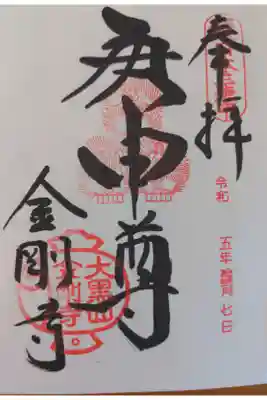 奉拝
令和 五年 七日
庚申尊
金剛寺
大黒山
金剛寺